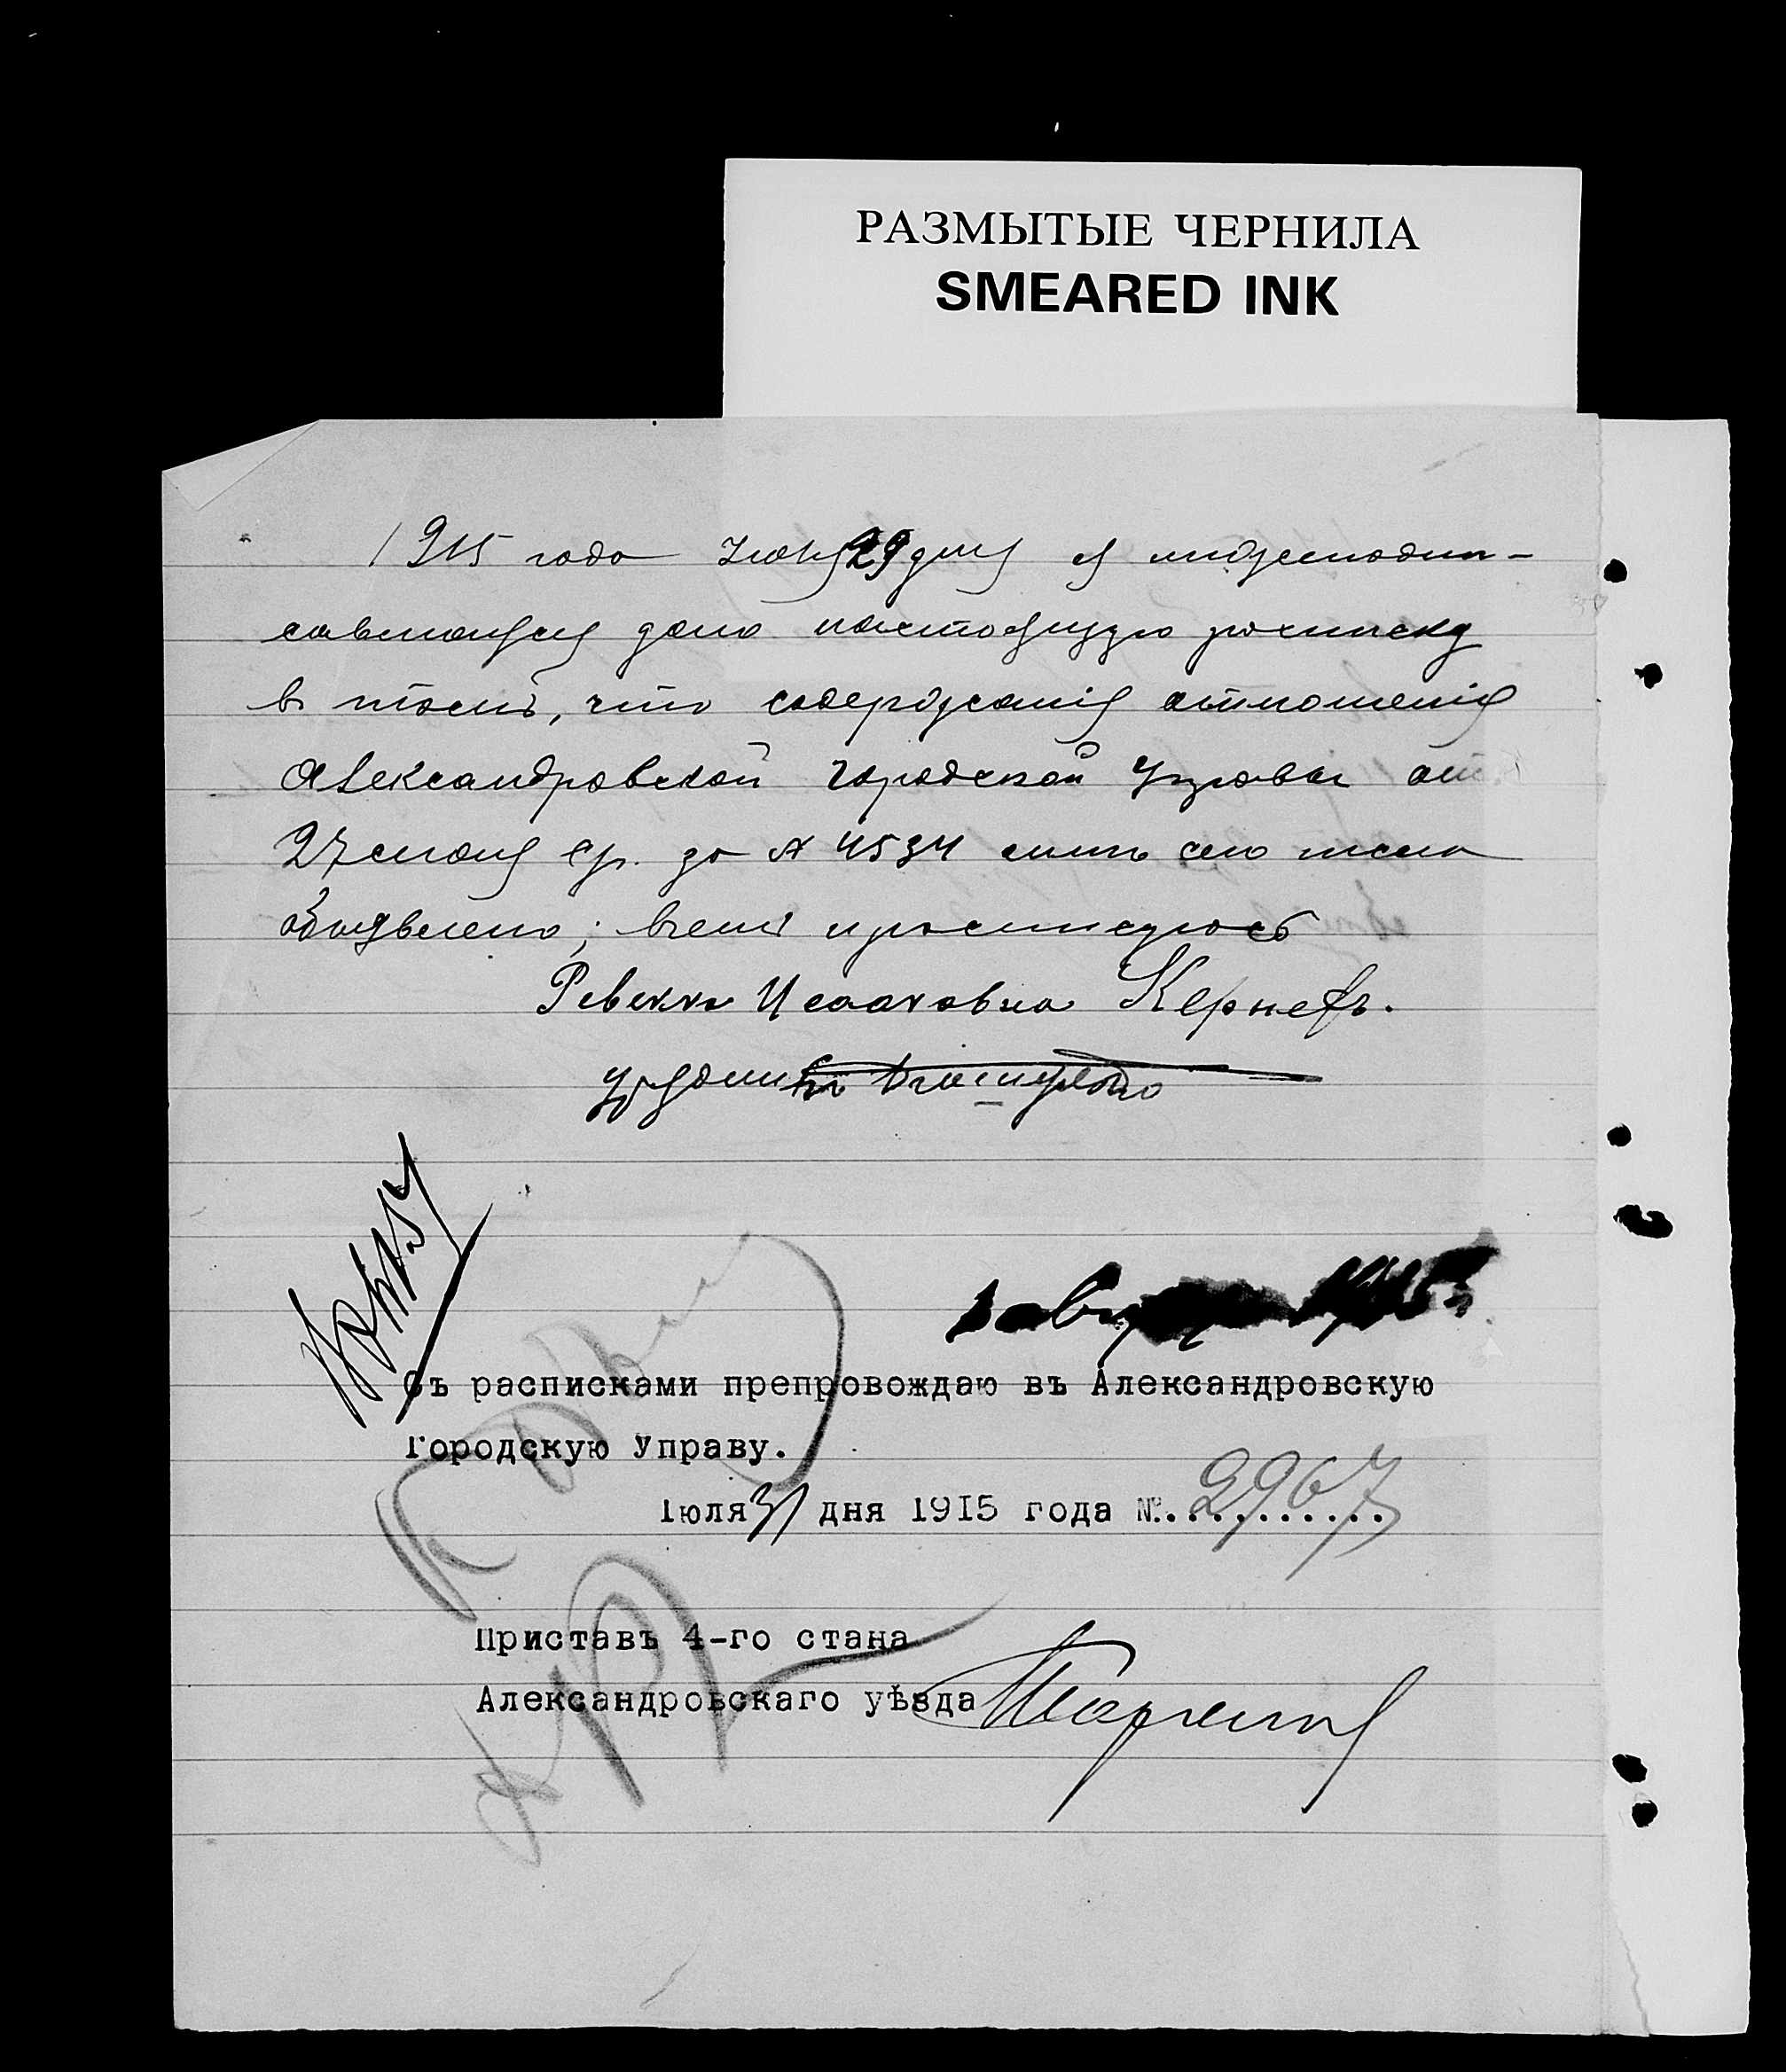 РАЗМЫТЫЕ ЧЕРНИЛА
SMEARED INK
1915 года Июля 29 дня я нижеподпи-
савшаяся дала настоящую росписку
в томъ, что содержанія отношенія
Александровской Городской Управы от
27 июля с.г. за № 4534 мнѣ сего числа
объявлено; в чем и росписуюсь
Ревекка Исааковна Кернеръ.
Урядникъ
1915
Съ расписками препровождаю въ Александровскую
Городскую Управу.
Іюля 31 дня 1915 года №. 2967
Приставъ 4-го стана
Александровскаго уѣзда